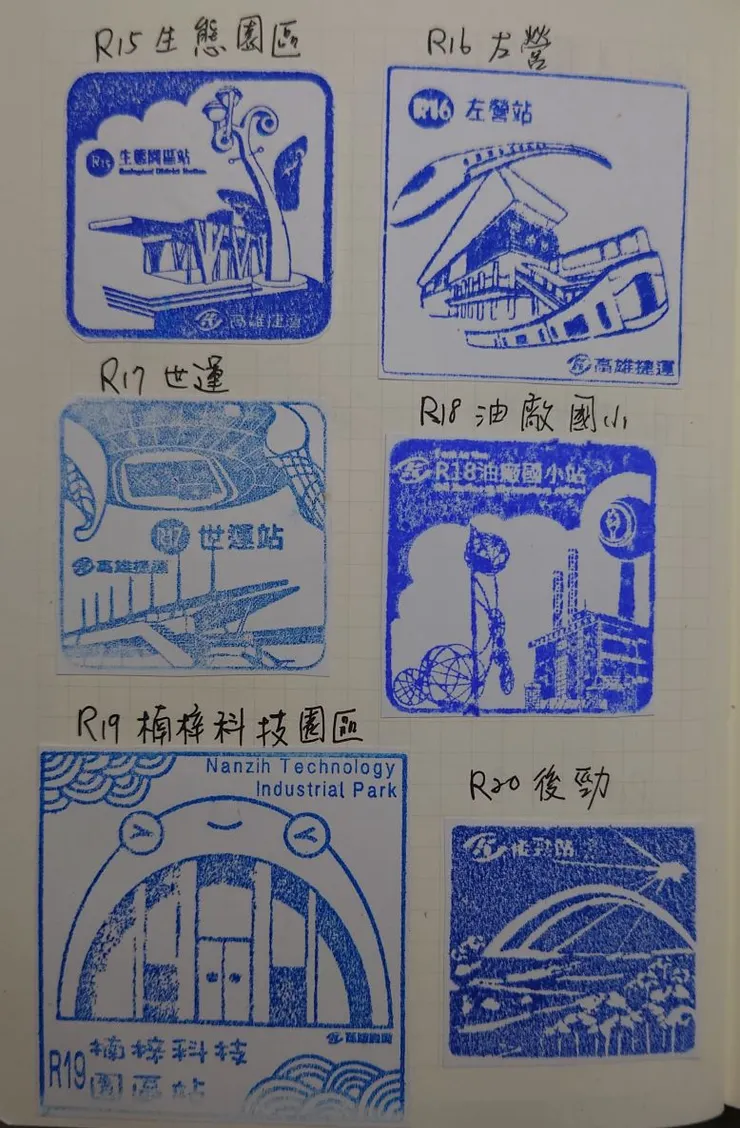 R15 生態園區
R16 左營
R15 生態園區站
Ecological District Station
高雄捷運
R16 左營站
高雄捷運
R17 世運
R18 油廠國小
R17 世運站
高雄捷運
R18油廠國小站
R19 楠梓科技園區
Nanzih Technology
Industrial Park
高雄捷運
R19 楠梓科技
園區站
R20 後勁
後勁站